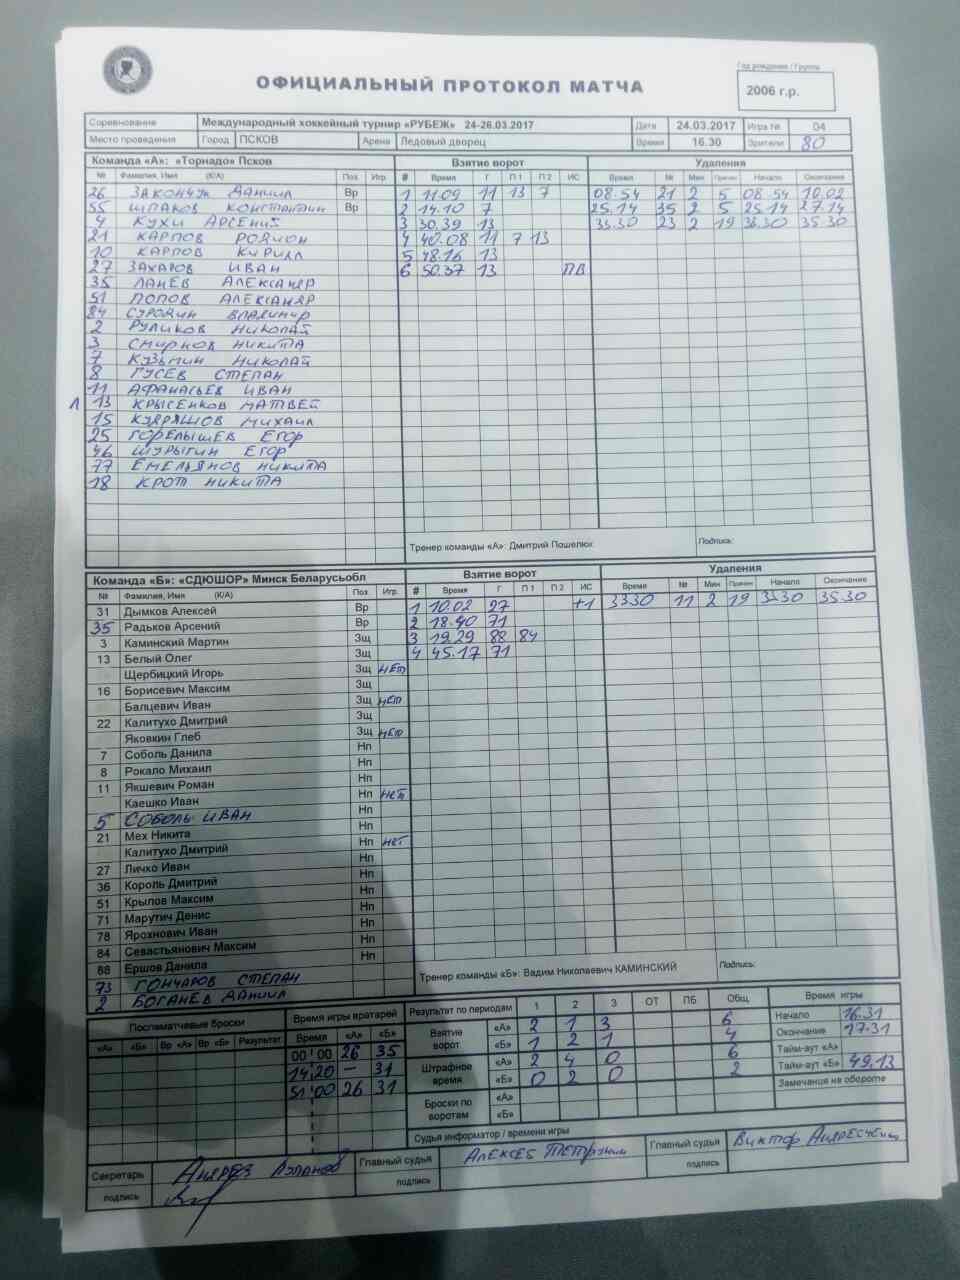 Год рождения / Группа
ОФИЦИАЛЬНЫЙ ПРОТОКОЛ МАТЧА
2006 г.р.
Соревнование Международный хоккейный турнир «РУБЕЖ» 24-26.03.2017 Дата 24.03.2017 Игра № 04
Место проведения Город ПСКОВ Арена Ледовый дворец Время 16.30 Зрители 80
Команда «А»: «Торнадо» Псков Взятие ворот Удаления
№ Фамилия, Имя (К/А) Поз. Игр. # Время Г П 1 П 2 ИС Время № Мин Причин Начало Окончание
26 ЗАКОНЧУК ДАНИИЛ Вр 1 11.09 11 13 7 08.54 21 2 5 08.54 10.02
55 ШПАКОВ КОНСТАНТИН Вр 2 14.10 7 25.14 35 2 5 25.14 27.14
4 КУХИ АРСЕНИЙ 3 30.39 13 33.30 23 2 19 33.30 35.30
21 КАРПОВ РОДИОН 4 40.08 11 7 13
10 КАРПОВ КИРИЛЛ 5 48.16 13
27 ЗАХАРОВ ИВАН 6 50.37 13 ПВ
35 ЛАНЕВ АЛЕКСАНДР
51 ПОПОВ АЛЕКСАНДР
84 СУРОДИН ВЛАДИМИР
2 РУЛИКОВ НИКОЛАЙ
3 СМИРНОВ НИКИТА
7 КУЗЬМИН НИКОЛАЙ
8 ГУСЕВ СТЕПАН
11 АФАНАСЬЕВ ИВАН
Л 13 КРЫСЕНКОВ МАТВЕЙ
15 КУДРЯШОВ МИХАИЛ
25 ГОРЕЛЫШЕВ ЕГОР
46 ШУРЫГИН ЕГОР
77 ЕМЕЛЬЯНОВ НИКИТА
18 КРОТ НИКИТА
Тренер команды «А»: Дмитрий Пошелюк Подпись:
Команда «Б»: «СДЮШОР» Минск Беларусьобл Взятие ворот Удаления
№ Фамилия, Имя (К/А) Поз. Игр. # Время Г П 1 П 2 ИС Время № Мин Причин Начало Окончание
31 Дымков Алексей Вр 1 10.02 27 +1 33.30 11 2 19 33.30 35.30
35 Радьков Арсений Вр 2 18.40 71
3 Каминский Мартин Зщ 3 19.29 88 84
13 Белый Олег Зщ 4 45.17 71
Щербицкий Игорь Зщ НЕТ
16 Борисевич Максим Зщ
Балцевич Иван Зщ НЕТ
22 Калитухо Дмитрий Зщ
Яковкин Глеб Зщ НЕТ
7 Соболь Данила Нп
8 Рокало Михаил Нп
11 Якшевич Роман Нп
Каешко Иван Нп НЕТ
5 СОБОЛЬ ИВАН Нп
21 Мех Никита Нп
Калитухо Дмитрий Нп НЕТ
27 Личко Иван Нп
36 Король Дмитрий Нп
51 Крылов Максим Нп
71 Марутич Денис Нп
78 Ярохнович Иван Нп
84 Севастьянович Максим Нп
88 Ершов Данила Нп
73 ГОНЧАРОВ СТЕПАН
2 БОГАНЕВ ДАНИИЛ
Тренер команды «Б»: Вадим Николаевич КАМИНСКИЙ Подпись:
Послематчевые броски Время игры вратарей Результат по периодам 1 2 3 ОТ ПБ Общ Время игры
«А» «Б» Вр «А» Вр «Б» Результат Время «А» «Б»
Взятие ворот «А» 2 1 3 6 Начало 16.31
«Б» 1 2 1 4 Окончание 17.31
00 00 26 35 Штрафное время «А» 2 4 0 6 Тайм-аут «А»
14.20 — 31 «Б» 0 2 0 2 Тайм-аут «Б» 49.13
51 00 26 31 Броски по воротам «А» Замечания на обороте
«Б»
Судья информатор / времени игры
Секретарь АНДРЕЙ Главный судья АЛЕКСЕЙ Главный судья ВИКТОР
подпись подпись подпись